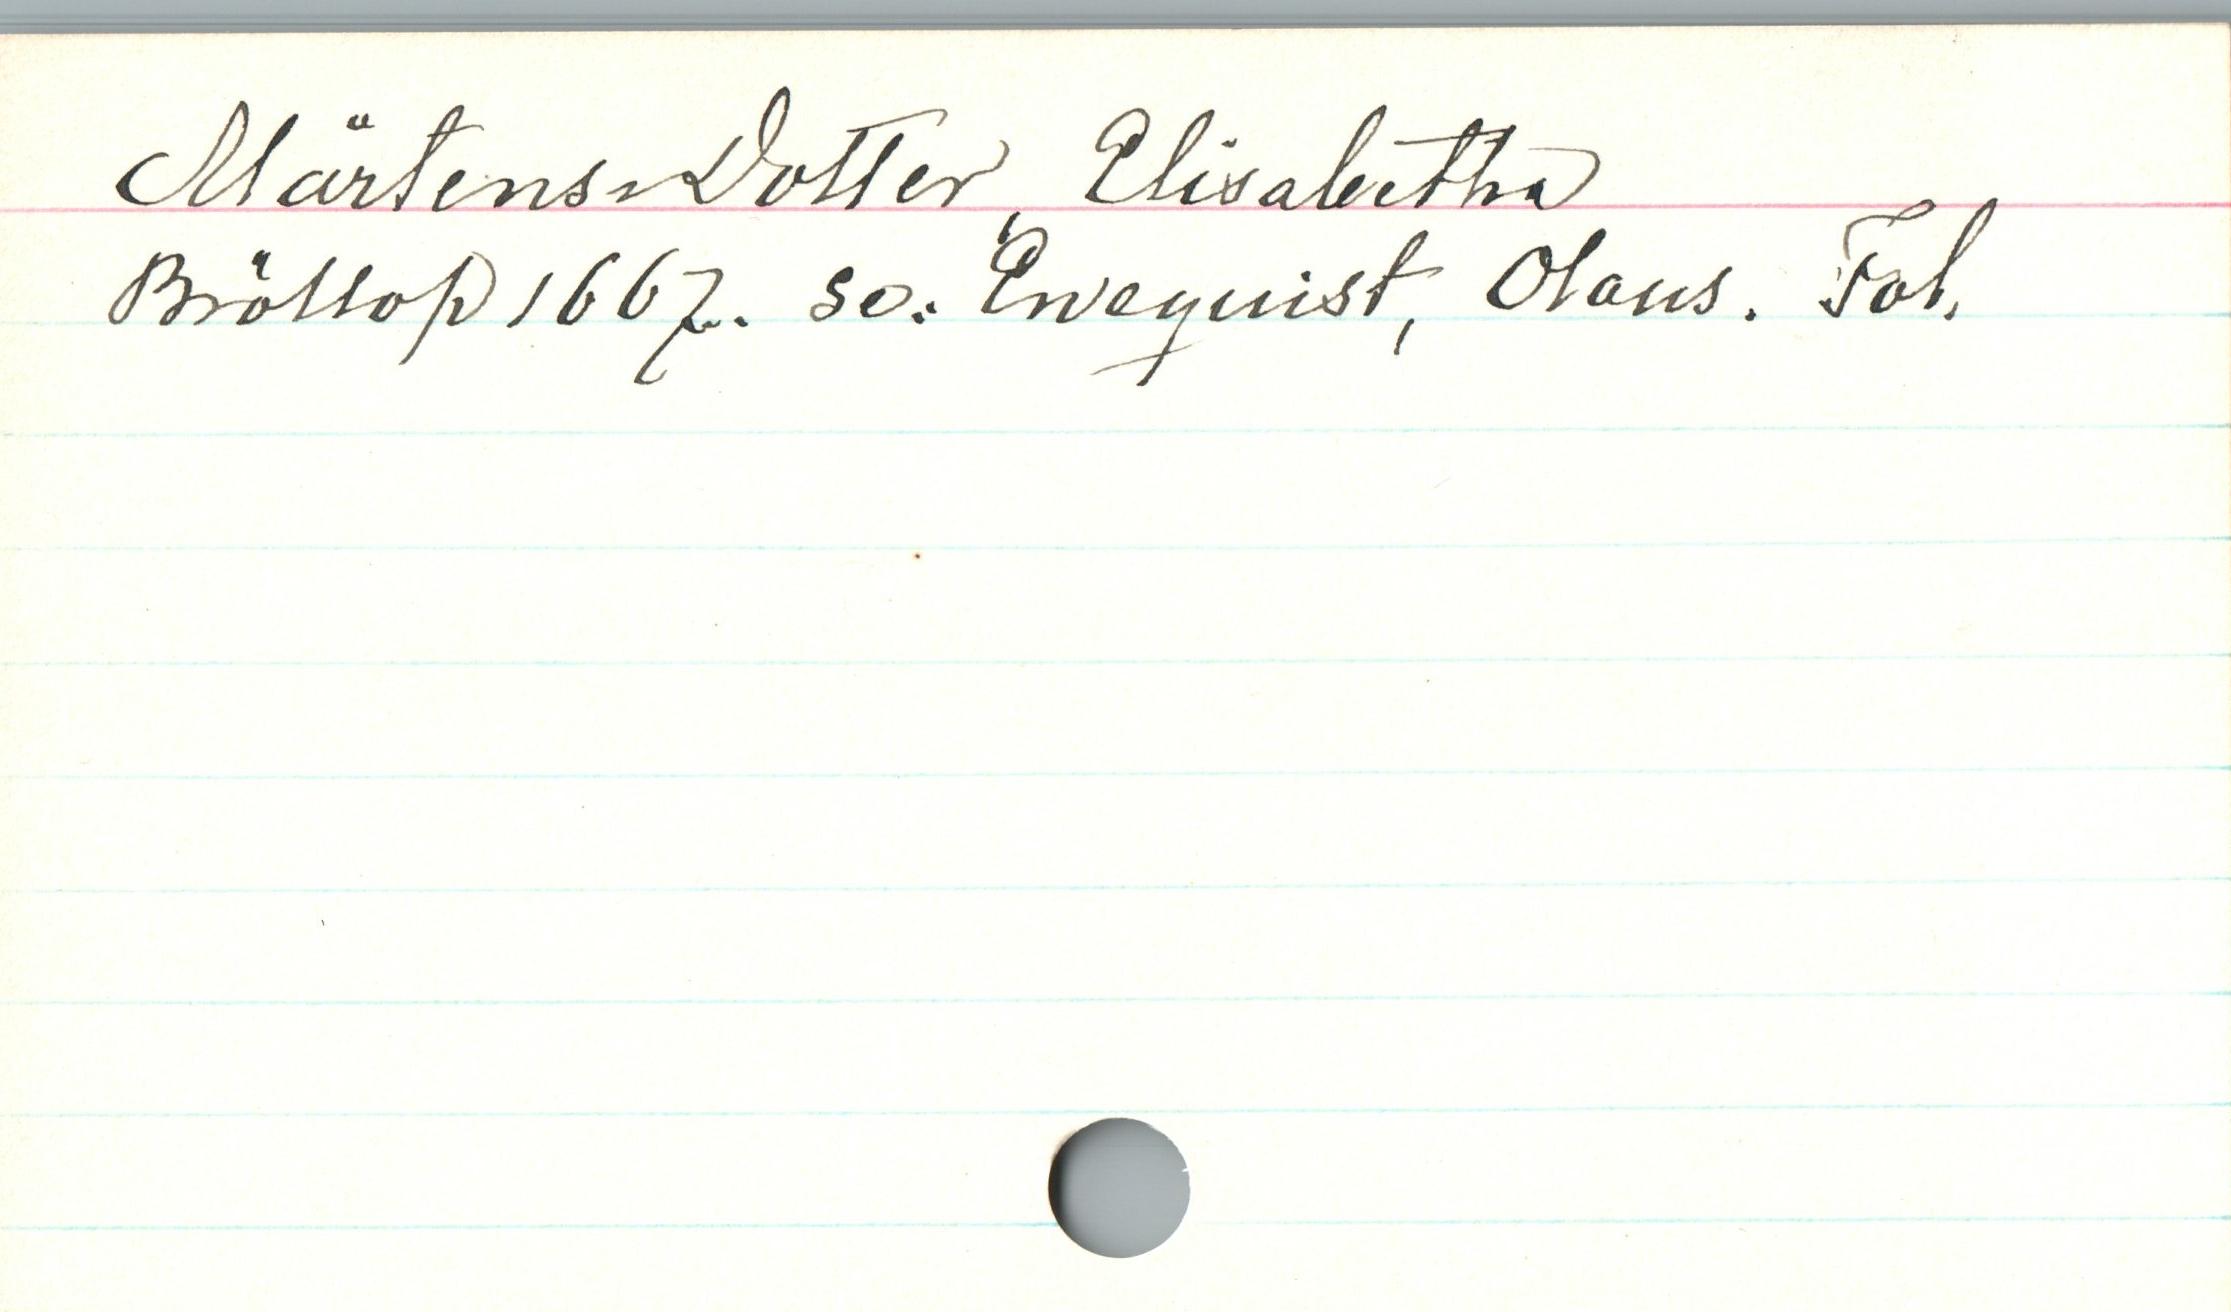 Märtens-Dotter, Elisabetha
Bröllop 1667. se: Enequist, Olaus. Fol.